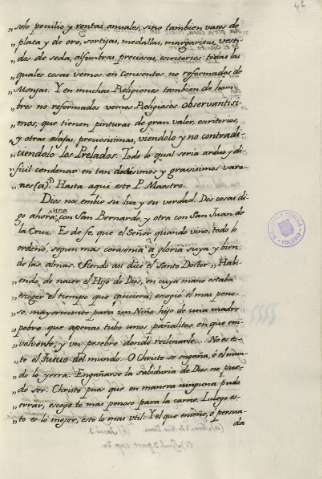 „solo peculio y rentas anuales, sino tambien vasos de
„plata y de oro, sortijas, medallas, margaritas, vesti-
„dos de seda, alfombras preciosas, escritorios: todas las
„quales cosas vemos en conventos no reformados de
„Monjas. Y en muchas Religiones tambien de hom-
„bres no reformados vemos Religiosos observantisi-
„mos, que tienen pinturas de gran valor, escritorios
„y otras alajas preciosisimas, viendolo y no contradi-
„ciendolo los Prelados. Todo lo qual seria arduo y di-
„ficil condenar en tan doctisimos y gravisimos varo-
„nes(a). Hasta aqui este P. Maestro.
Dios nos embie su luz y su verdad. Dos cosas di-
go ahora: una con San Bernardo, y otra con San Juan de
la Cruz. Es de fe que el Señor quando vino, todo lo
ordenó, segun mas convenia á gloria suya y bien
de las almas. Siendo asi dice el Santo Doctor „Habi-
„endo de nacer el Hijo de Dios, en cuya mano estaba
„escoger el tiempo que quisiera, escogió el mas peno-
„so, mayormente para un Niño hijo de una madre
„pobre que apenas tubo unos pañalitos en que em-
„volverlo, y un pesebre donde reclinarle. No es es-
„te el Juicio del mundo. O Christo se engaña, ó el mun-
„do lo yerra. Engañarse la Sabiduria de Dios no pue-
„de ser. Christo pues que en manera ninguna pudo
„errar, escogió lo mas penoso para la carne. Luego es-
„to es lo mejor, esto lo mas util. Y el que enseñe, ó persua-
da